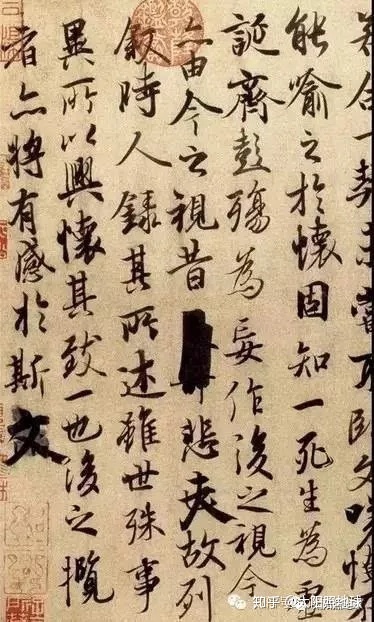 若合一契未嘗不臨文嗟悼不
能喻之於懷固知一死生為虛
誕齊彭殤為妄作後之視今
亦由今之視昔悲夫故列
敘時人錄其所述雖世殊事
異所以興懷其致一也後之攬
者亦將有感於斯文
知乎 @太阳照地球